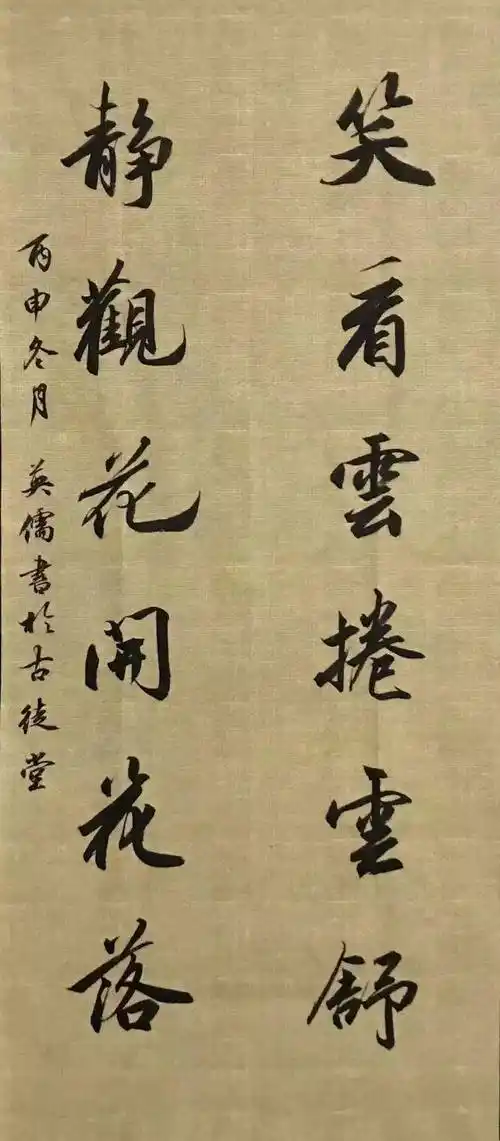 笑看雲捲雲舒
靜觀花開花落
丙申冬月 英儒書於古徒堂